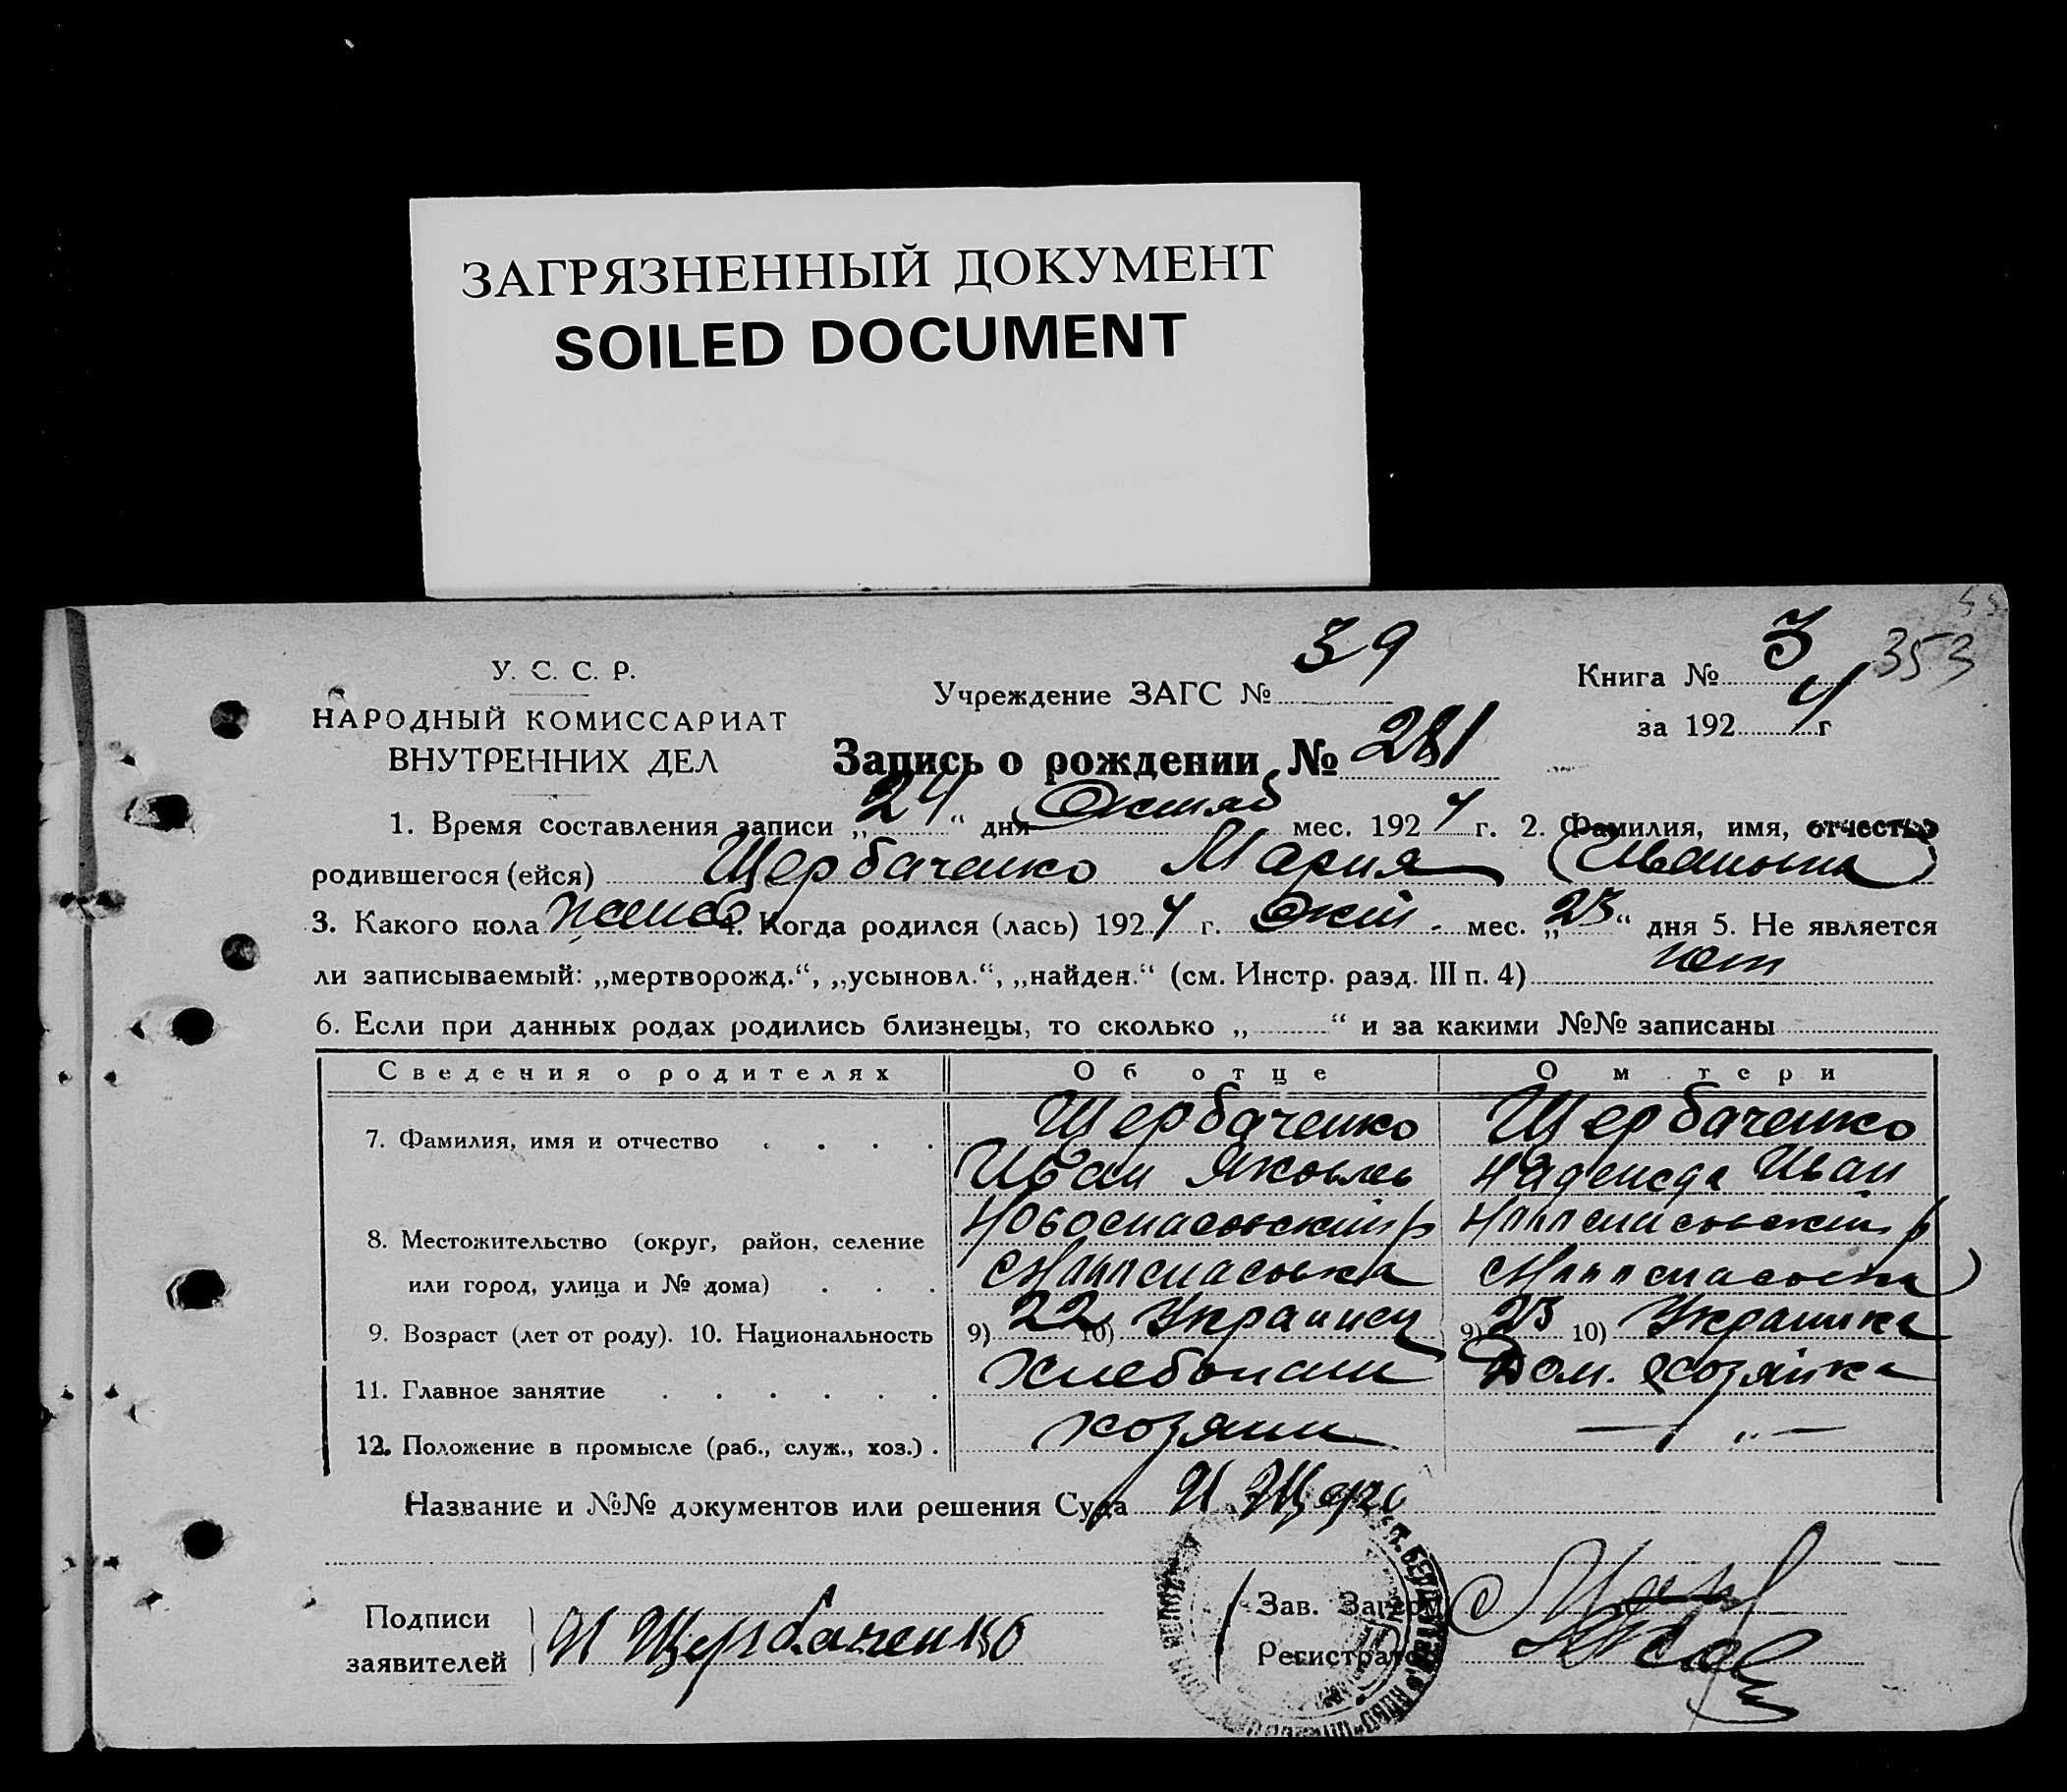 ЗАГРЯЗНЕННЫЙ ДОКУМЕНТ
SOILED DOCUMENT
353
У. С. С. Р.
НАРОДНЫЙ КОМИССАРИАТ
ВНУТРЕННИХ ДЕЛ
Учреждение ЗАГС № 39
Книга № 3
за 1924 г
Запись о рождении № 281
1. Время составления записи „24“ дня Октяб мес. 1924 г. 2. Фамилия, имя, отчество
родившегося (ейся) Щербаченко Мария (Ивановна)
3. Какого пола женск 4. Когда родился (лась) 1924 г. Окт. мес. „23“ дня 5. Не является
ли записываемый: „мертворожд.“, „усыновл.“, „найден.“ (см. Инстр. разд. III п. 4) нет
6. Если при данных родах родились близнецы, то сколько „ “ и за какими №№ записаны
Сведения о родителях Об отце О м тери
7. Фамилия, имя и отчество Щербаченко Щербаченко
Иван Яковль Надежда Иван
Новоспасовский р Новоспасовский р
8. Местожительство (округ, район, селение
или город, улица и № дома) с Новоспасовка с Новоспасовка
9. Возраст (лет от роду). 10. Национальность 9) 22 10) Украинец 9) 23 10) Украинка
11. Главное занятие Хлебопаш Дом. хозяйка
12. Положение в промысле (раб., служ., хоз.) хозяин — „ —
Название и №№ документов или решения Суда И Щерб
Подписи
заявителей И Щербаченко
Зав. Загсом
Регистратор